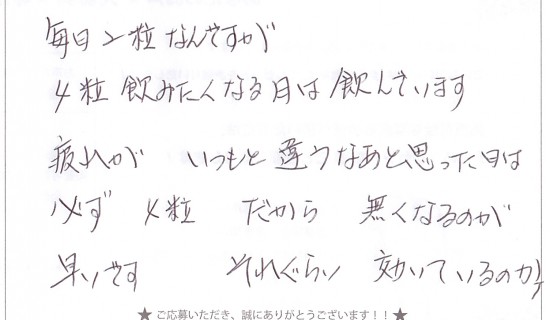 毎日2粒なんですが
4粒 飲みたくなる日は 飲んでいます
疲れが いつもと違うなあと思った日は
必ず 4粒 だから 無くなるのが
早いです それぐらい 効いているのか
★ ご応募いただき、誠にありがとうございます！！ ★